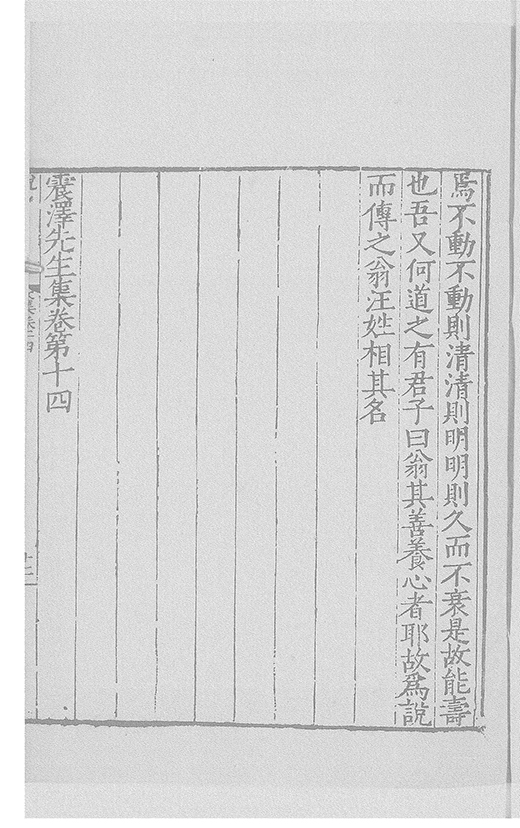 焉不動不動則清清則明明則久而不衰是故能壽
也吾又何道之有君子曰翁其善養心者耶故爲說
而傳之翁汪姓相其名
震澤先生集卷第十四